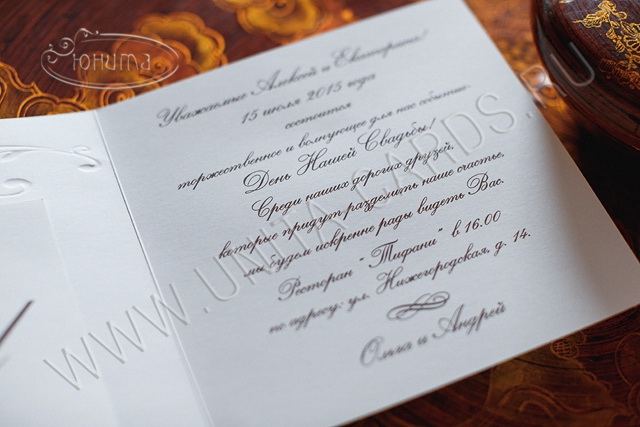 Юнита
Уважаемые Алексей и Екатерина!
15 июля 2015 года
состоится
торжественное и волнующее для нас событие-
День Нашей Свадьбы!
Среди наших дорогих друзей,
которые придут разделить наше счастье,
мы будем искренне рады видеть Вас.
Ресторан "Тифани" в 16.00
по адресу: ул. Нижегородская, д. 14.
Ольга и Андрей
WWW.UNITA-CARDS.RU